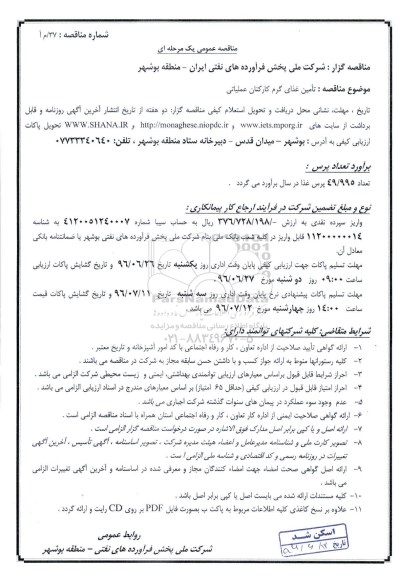 شماره مناقصه : ۳۷/م آ
مناقصه عمومی یک مرحله ای
مناقصه گزار : شرکت ملی پخش فرآورده های نفتی ایران - منطقه بوشهر
موضوع مناقصه : تأمین غذای گرم کارکنان عملیاتی
تاریخ ، مهلت، نشانی محل دریافت و تحویل استعلام کیفی مناقصه گزار: دو هفته از تاریخ انتشار آخرین آگهی روزنامه و قابل
برداشت از سایت های www.iets.mporg.ir و http://monaghese.niopdc.ir و WWW.SHANA.IR تحویل پاکات
ارزیابی کیفی به آدرس : بوشهر - میدان قدس - دبیرخانه ستاد منطقه بوشهر ، تلفن: ۰۷۷۳۳۳۴۰۶۴۰
برآورد تعداد پرس :
تعداد ۴۹/۹۹۵ پرس غذا در سال برآورد می گردد .
نوع و مبلغ تضمین شرکت در فرآیند ارجاع کار پیمانکاری:
واریز سپرده نقدی به ارزش /-۳۷۶/۷۳۸/۱۹۸ ریال به حساب سیبا شماره ۴۱۲۰۰۵۱۲۴۰۰۰۷ به شناسه
۱۱۲۰۰۰۰۰۰۱۴ قابل واریز در کلیه شعب بانک ملی بنام شرکت ملی پخش فرآورده های نفتی بوشهر یا ضمانتنامه بانکی
معادل آن.
مهلت تسلیم پاکات جهت ارزیابی کیفی پایان وقت اداری روز یکشنبه تاریخ ۹۶/۰۶/۲۶ و تاریخ گشایش پاکات ارزیابی
ساعت ۰۹:۰۰ روز دو شنبه مورخ ۹۶/۰۶/۲۷ .
مهلت تسلیم پاکات پیشنهادی نرخ پایان وقت اداری روز سه شنبه تاریخ ۹۶/۰۷/۱۱ و تاریخ گشایش پاکات قیمت
ساعت ۱۴:۰۰ روز چهارشنبه مورخ ۹۶/۰۷/۱۲ می باشد .
۰۲۱-۸۸۳۴۹۶۷۰-۵
شرایط متقاضی: کلیه شرکتهای توانمند دارای:
۱- ارائه گواهی تأیید صلاحیت از اداره تعاون ، کار و رفاه اجتماعی با کد امور آشپزخانه و تاریخ معتبر .
۲- کلیه رستورانها منوط به ارائه جواز کسب و با داشتن حسن سابقه مجاز به شرکت در مناقصه می باشند .
۳- احراز شرایط قابل قبول براساس معیارهای ارزیابی توانمندی بهداشتی، ایمنی و زیست محیطی شرکت الزامی می باشد .
۴- احراز امتیاز قابل قبول در ارزیابی کیفی (حداقل ۶۵ امتیاز) بر اساس معیارهای مندرج در اسناد ارزیابی الزامی می باشد .
۵- عدم وجود سوء عملکرد در پیمان های سنوات گذشته شرکت اجباری می باشد .
۶- ارائه گواهی صلاحیت ایمنی از اداره کار تعاون ، کار و رفاه اجتماعی استان همراه با اسناد مناقصه الزامی است .
۷- ارائه اصل و یا کپی برابر اصل مدارک فوق الاشاره در صورت درخواست مناقصه گزار الزامی است .
۸- تصویر کارت ملی و شناسنامه مدیرعامل و اعضاء هیئت مدیره شرکت ، تصویر اساسنامه ، آگهی تأسیس ، آخرین آگهی
تغییرات در روزنامه رسمی و کد اقتصادی و شناسه ملی الزامی است .
۹- ارائه اصل گواهی صحت امضاء جهت امضاء کنندگان مجاز و معرفی شده در اساسنامه و آخرین آگهی تغییرات الزامی
می باشد .
۱۰- کلیه مستندات ارائه شده می بایست اصل یا کپی برابر اصل باشد .
۱۱- علاوه بر نسخ کاغذی کلیه اطلاعات مربوط به پاکت ب بصورت فایل PDF بر روی CD رایت و ارائه گردد .
روابط عمومی
شرکت ملی پخش فرآورده های نفتی - منطقه بوشهر
اسکن شد